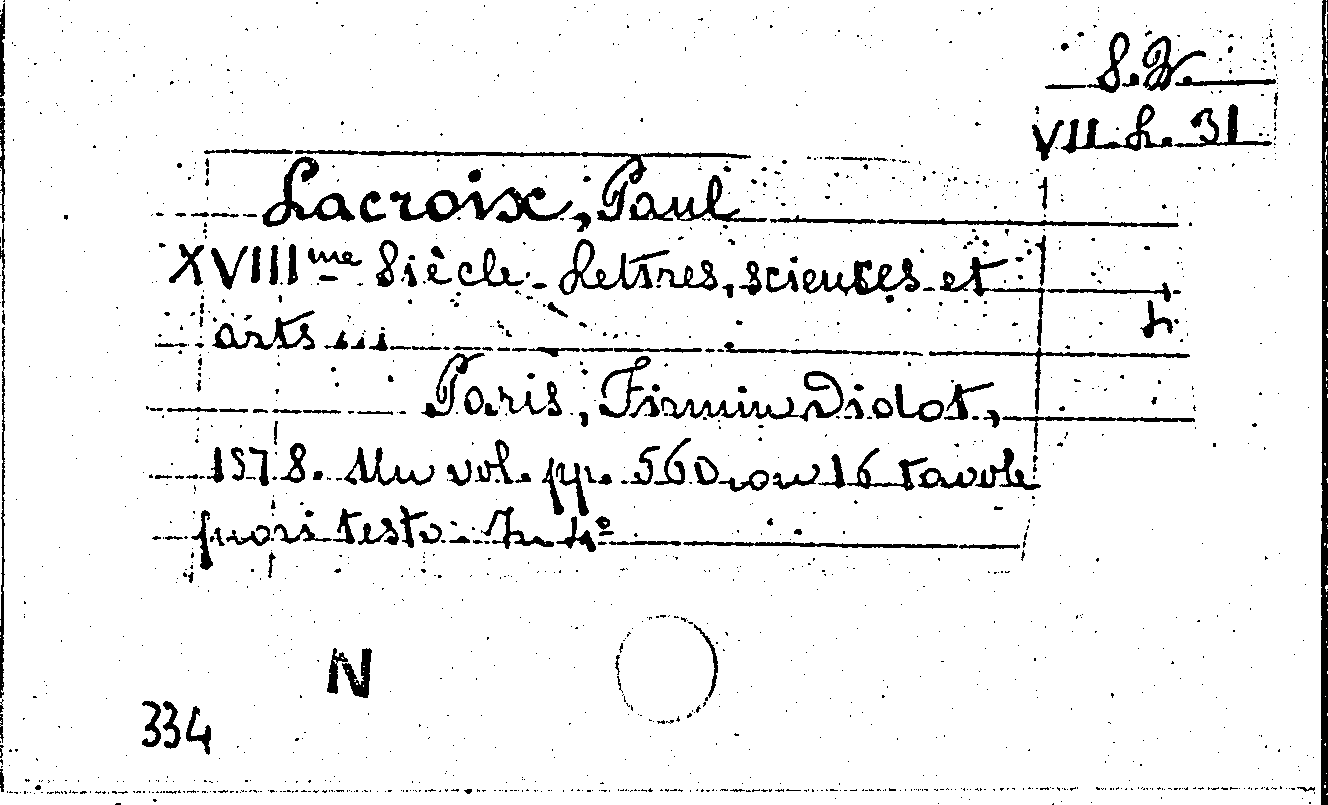 S. W.
VII. L. 31
Lacroix, Paul
XVIIIme Siècle. Lettres, sciences et
arts ...
4
Paris, Firmin Didot,
1878. Un vol. pp. 560, con 16 tavole
fuori testo. In 4º
N
334